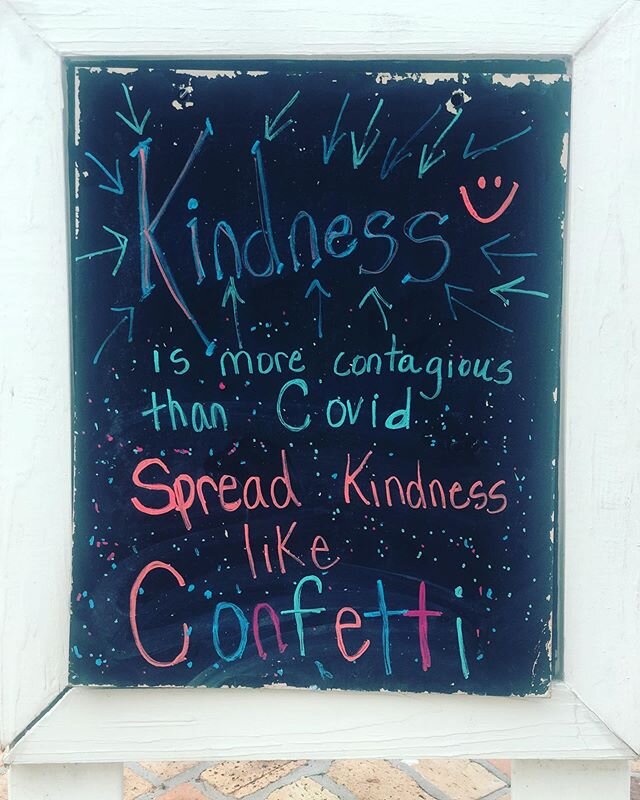 Kindness
is more contagious
than Covid
Spread Kindness
like
Confetti